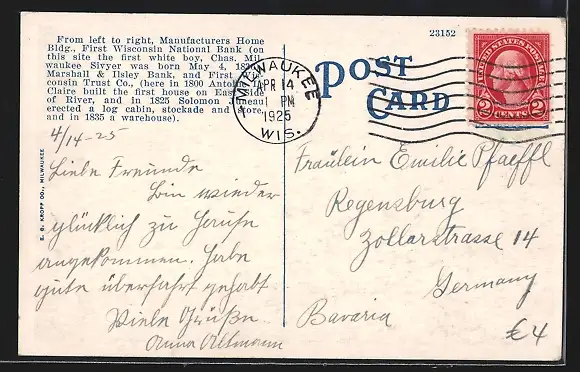 From left to right, Manufacturers Home
Bldg., First Wisconsin National Bank (on
this site the first white boy, Chas. Mil-
waukee Sivyer was born May 4, 1836),
Marshall & Ilsley Bank, and First Wis-
consin Trust Co., (here in 1800 Antoine Le
Claire built the first house on East Side
of River, and in 1825 Solomon Juneau
erected a log cabin, stockade and store,
and in 1835 a warehouse).
23152
POST
CARD
MILWAUKEE
APR 14
1 PM
1925
WIS.
UNITED STATES POSTAGE
2 CENTS 2
E. C. KROPP CO., MILWAUKEE
4/14-25
Liebe Freunde
bin wieder
glücklich zu Hause
angekommen. Habe
gute überfahrt gehabt
Viele Grüße
Anna Altmann
Fräulein Emilie Pfaeffl
Regensburg
Zollarstrasse 14
Germany
Bavaria
€4